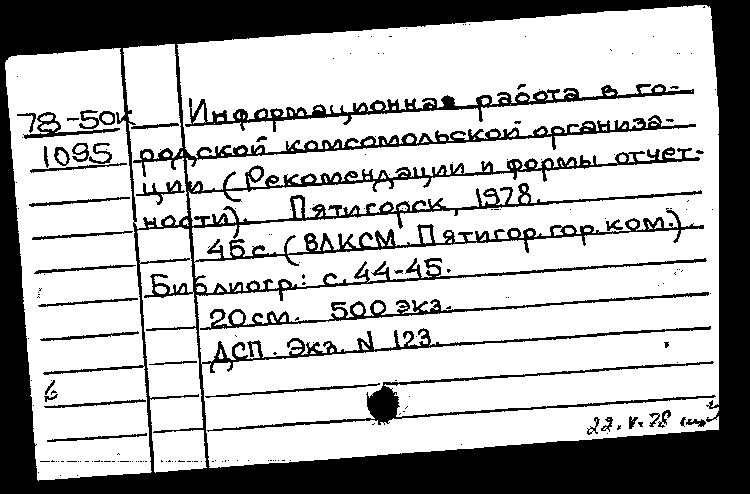 78-50к Информационная работа в го-
1095 родской комсомольской организа-
ции. (Рекомендации и формы отчет-
ности). Пятигорск, 1978.
45 с. (ВЛКСМ. Пятигор. гор. ком.).
Библиогр.: с. 44-45.
20 см. 500 экз.
ДСП. Экз. N 123.
6
22.V.78